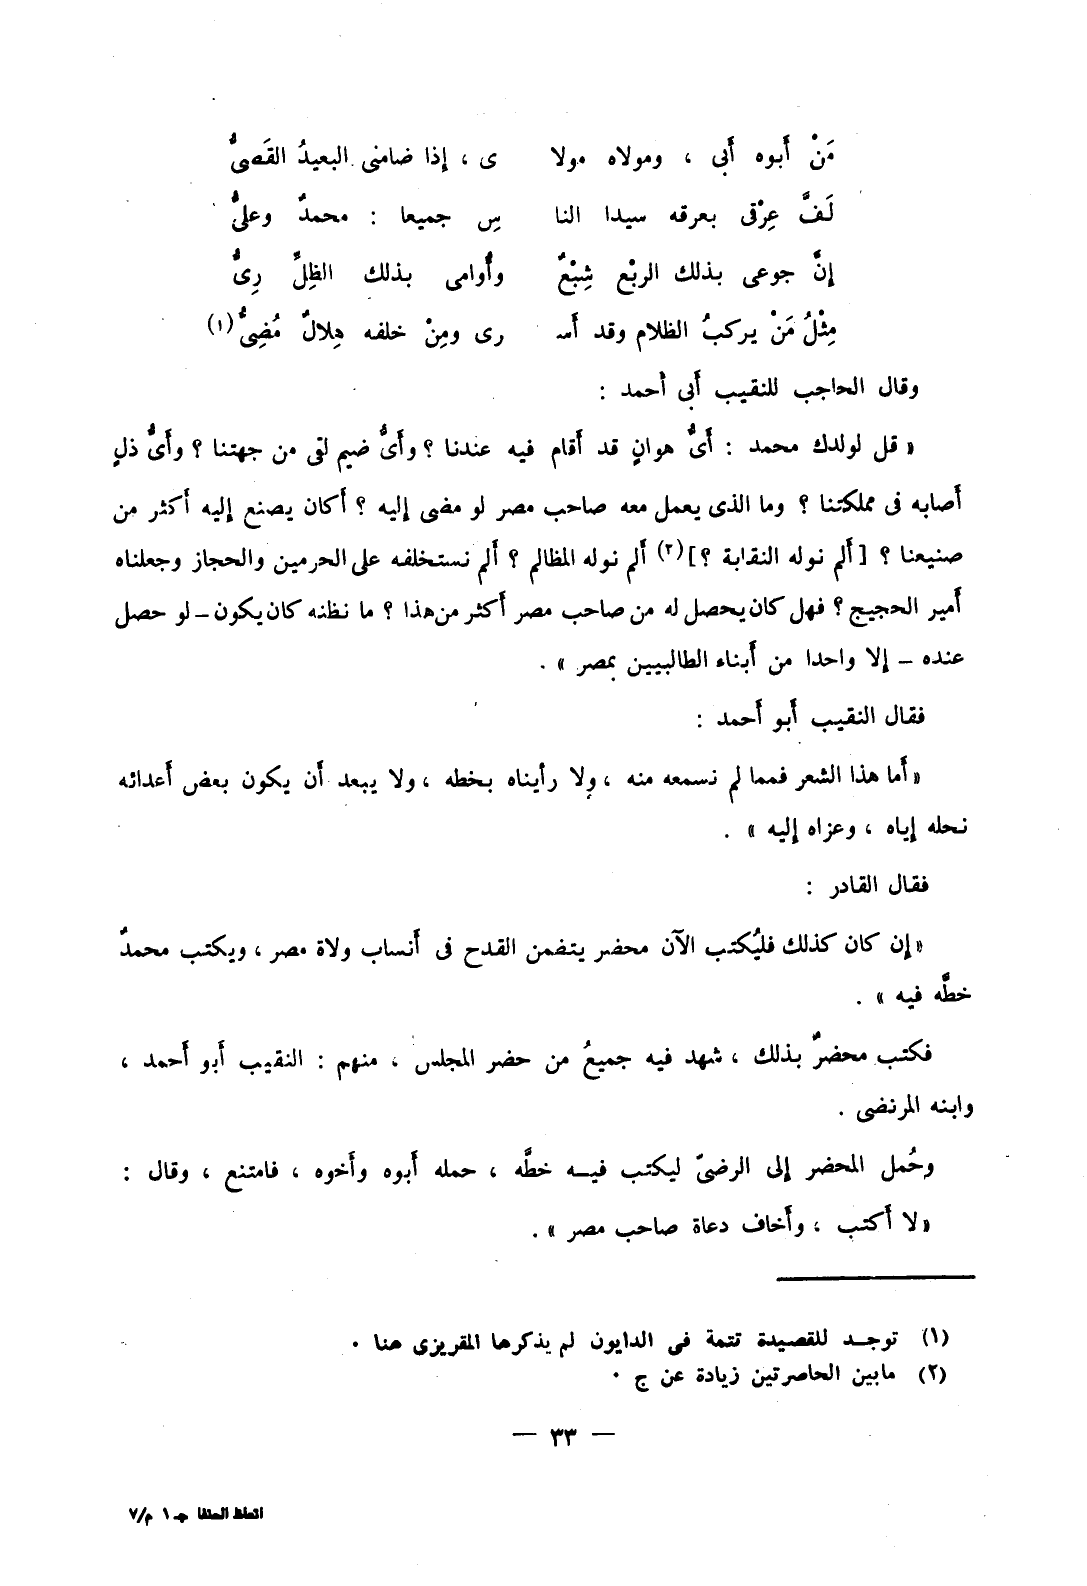 مَنْ أَبوه أَبى ، ومولاه مولا ى ، إذا ضامنى البعيدُ القَصىُّ
لَفَّ عِرْقى بعرقه سيدا النا سِ جميعا : محمدٌ وعلىُّ
إنَّ جوعى بذلك الربْع شِبْعٌ وأُوامى بذلك الظِلِّ رِىُّ
مِثْلُ مَنْ يركبُ الظلام وقد أَسـ رى ومِنْ خلفه هِلالٌ مُضِىُّ(١)
وقال الحاجب للنقيب أَبى أحمد :
« قل لولدك محمد : أَىُّ هوانٍ قد أَقام فيه عندنا ؟ وأَىُّ ضيم لقى من جهتنا ؟ وأَىُّ ذلٍ
أَصابه فى مملكتنا ؟ وما الذى يعمل معه صاحب مصر لو مضى إليه ؟ أَكان يصنع إليه أكثر من
صنيعنا ؟ [ أَلم نوله النقابة ؟](٢) أَلم نوله المظالم ؟ أَلم نستخلفه على الحرمين والحجاز وجعلناه
أَمير الحجيج ؟ فهل كان يحصل له من صاحب مصر أَكثر من هذا ؟ ما نظنه كان يكون – لو حصل
عنده – إلا واحدا من أَبناء الطالبيين بمصر » .
فقال النقيب أَبو أَحمد :
« أَما هذا الشعر فمما لم نسمعه منه ، ولا رأيناه بخطه ، ولا يبعد أَن يكون بعض أَعدائه
نحله إياه ، وعزاه إليه » .
فقال القادر :
« إن كان كذلك فليُكتب الآن محضر يتضمن القدح فى أَنساب ولاة مصر ، ويكتب محمدٌ
خطَّه فيه » .
فكتب محضرٌ بذلك ، شهد فيه جميعُ من حضر المجلس ، منهم : النقيب أَبو أَحمد ،
وابنه المرتضى .
وحُمل المحضر إلى الرضىّ ليكتب فيــه خطَّه ، حمله أَبوه وأَخوه ، فامتنع ، وقال :
« لا أَكتب ، وأَخاف دعاة صاحب مصر » .
(١) توجــد للقصيدة تتمة فى الدايون لم يذكرها المقريزى هنا ٠
(٢) مابين الحاصرتين زيادة عن ج ٠
— ٣٣ —
اتعاظ الحنفا جـ ١ م/٧